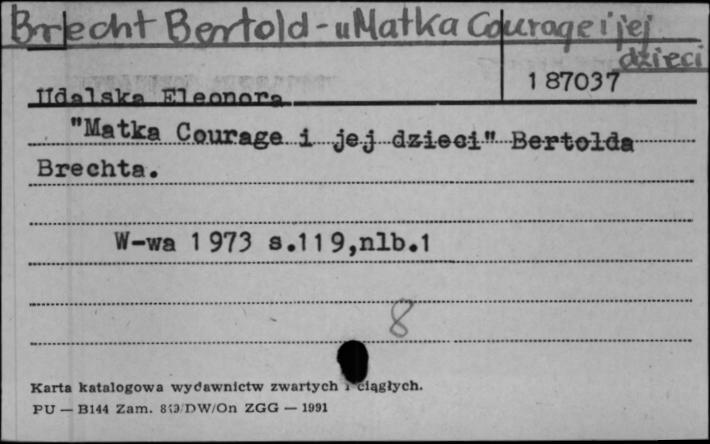 Brecht Bertold - "Matka Courage i jej
dzieci
187037
Udalska Eleonora
"Matka Courage i jej dzieci" Bertolda
Brechta.
W-wa 1973 s.119,nlb.1
8
Karta katalogowa wydawnictw zwartych i ciągłych.
PU — B144 Zam. /DW/On ZGG — 1991